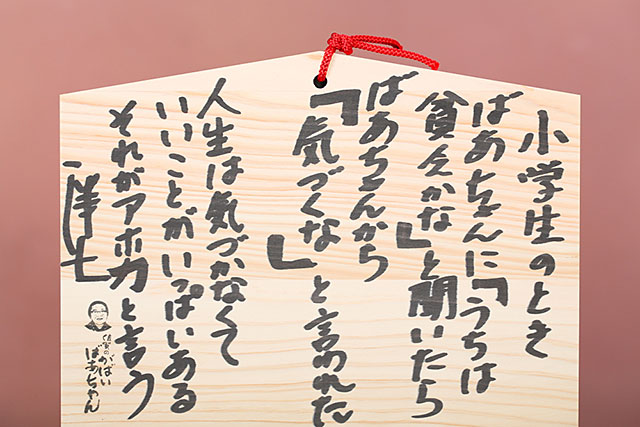 小学生のとき
ばあちゃんに「うちは
貧乏かな」と聞いたら
ばあちゃんから
「気づくな」と言われた
人生は気づかなくて
いいことがいっぱいある
それがアホカと言う
洋七
佐賀のがばい
ばあちゃん